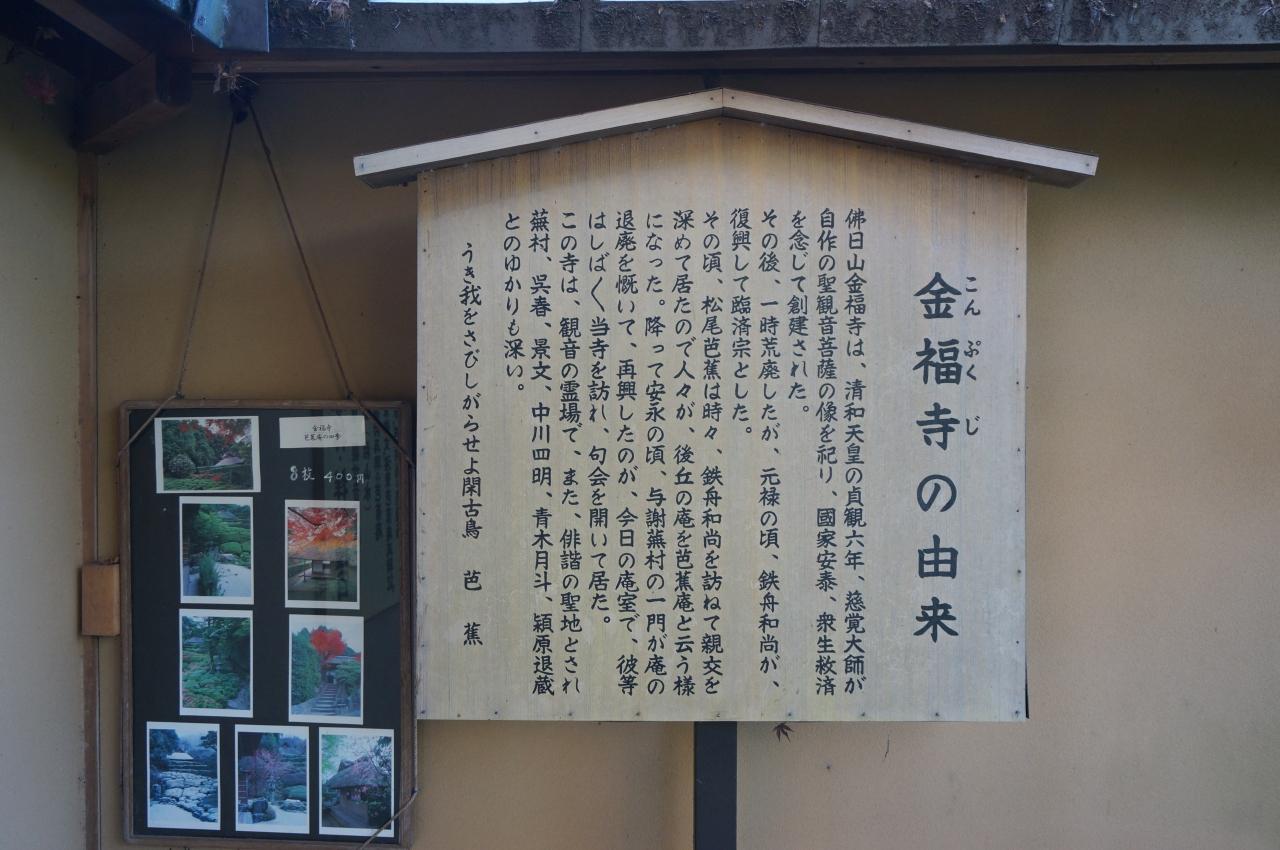 金福寺の由来
こんぷくじ
佛日山金福寺は、清和天皇の貞観六年、慈覚大師が
自作の聖観音菩薩の像を祀り、國家安泰、衆生救済
を念じて創建された。
その後、一時荒廃したが、元禄の頃、鉄舟和尚が、
復興して臨済宗とした。
その頃、松尾芭蕉は時々、鉄舟和尚を訪ねて親交を
深めて居たので人々が、後丘の庵を芭蕉庵と云う様
になった。降って安永の頃、与謝蕪村の一門が庵の
退廃を慨いて、再興したのが、今日の庵室で、彼等
はしばしば当寺を訪れ、句会を開いて居た。
この寺は、観音の霊場で、また、俳諧の聖地とされ
蕪村、呉春、景文、中川四明、青木月斗、穎原退蔵
とのゆかりも深い。
うき我をさびしがらせよ閑古鳥 芭蕉
金福寺
芭蕉庵の四季
8枚 400円